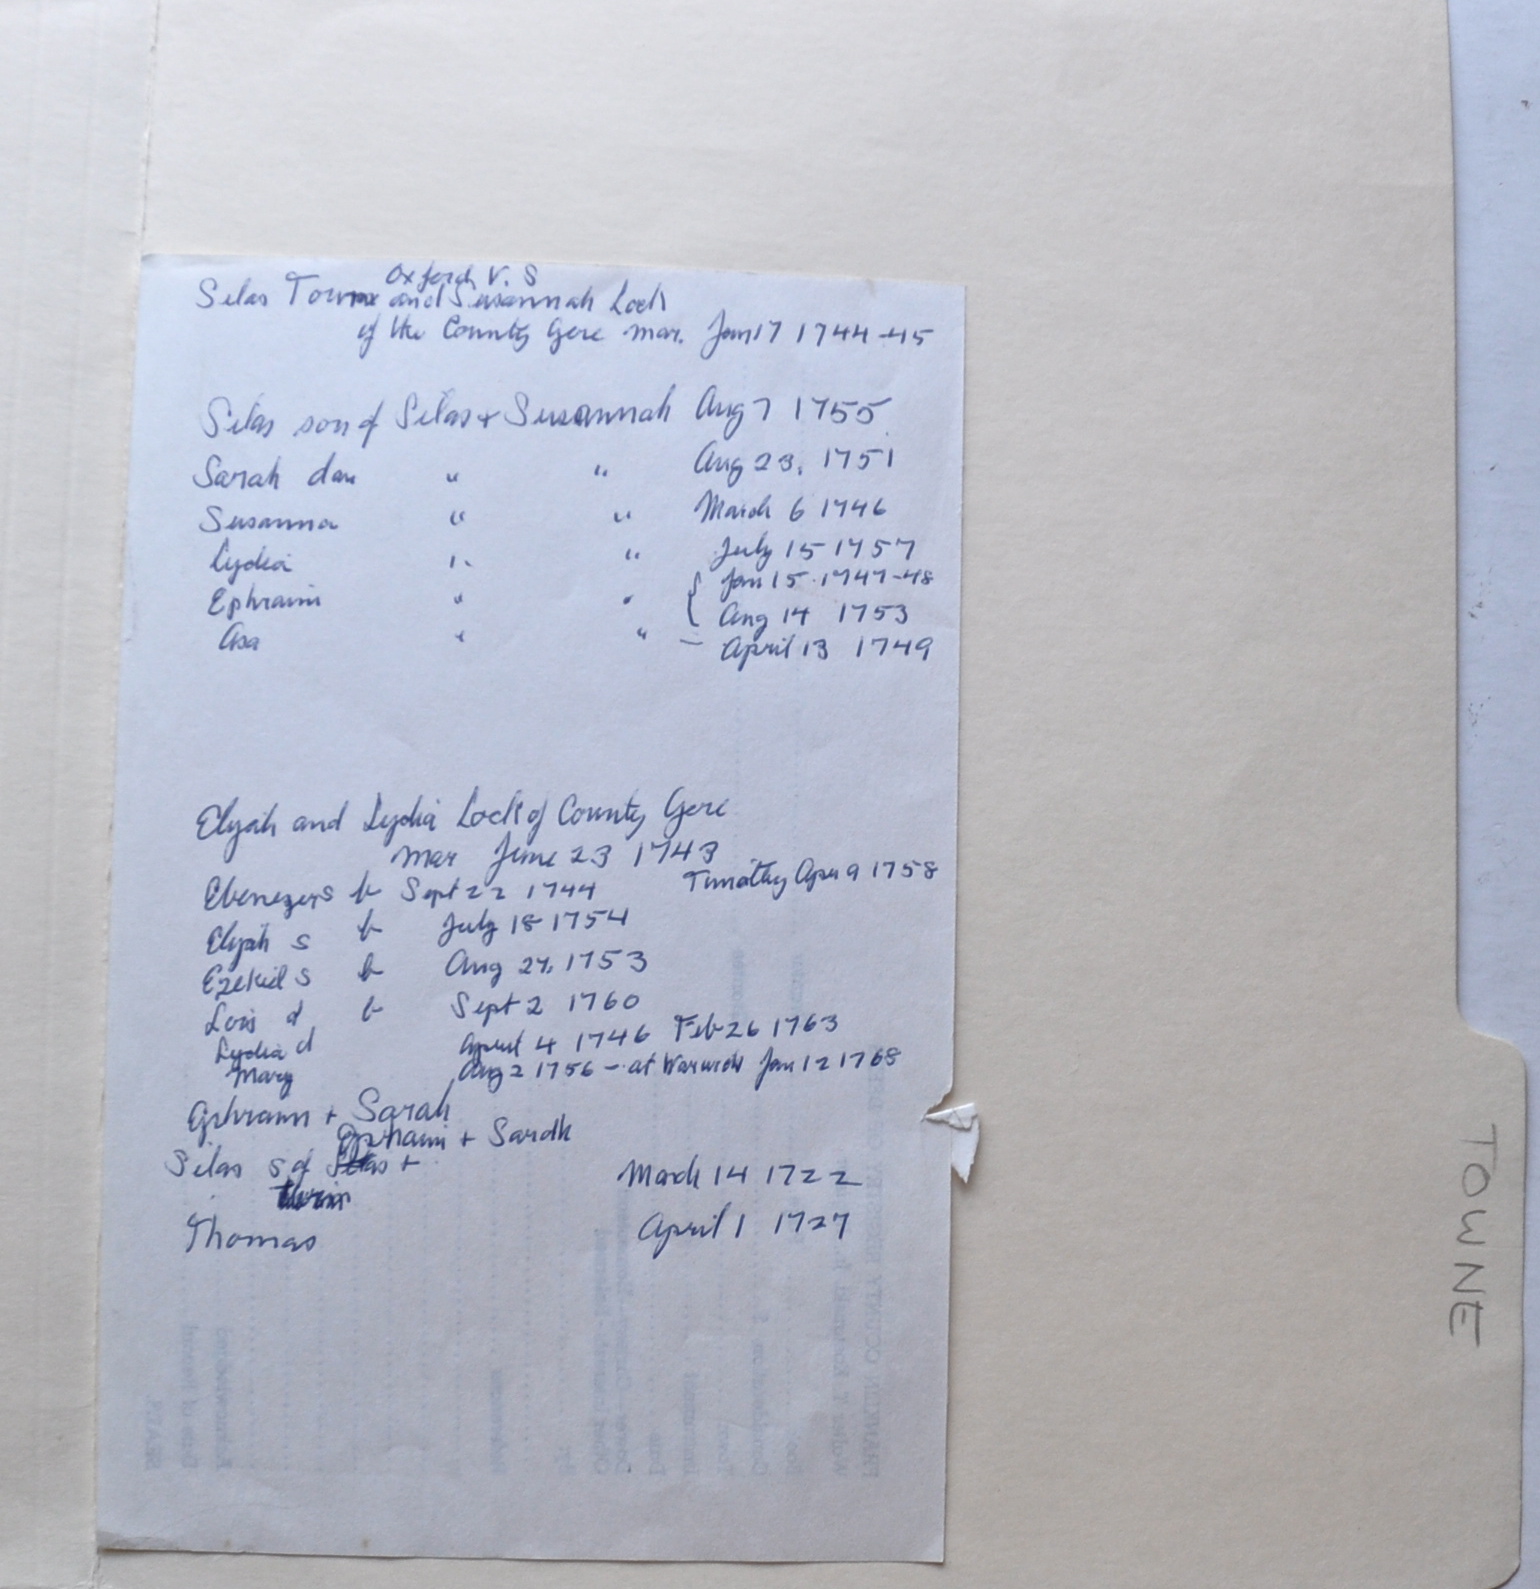 Oxford V. S
Silas Towne and Susannah Lock
of the County Gore mar. Jan 17 1744-45
Silas son of Silas + Susannah Aug 7 1755
Sarah dau " " Aug 23, 1751
Susanna " " March 6 1746
Lydia " " July 15 1757
Ephraim " " { Jan 15 1747-48
Aug 14 1753
Asa " " - April 13 1749
Elijah and Lydia Lock of County Gore
mar June 23 1743
Ebenezer s b Sept 22 1744 Timothy Apr 9 1758
Elijah s b July 18 1754
Ezekiel s b Aug 27, 1753
Lois d b Sept 2 1760
Lydia d April 4 1746 Feb 26 1763
Mary Aug 2 1756 - at Warwick Jan 12 1768
Ephraim + Sarah
Ephraim + Sarah
Silas s of Silas + March 14 1722
twin
Thomas April 1 1727
TOWNE